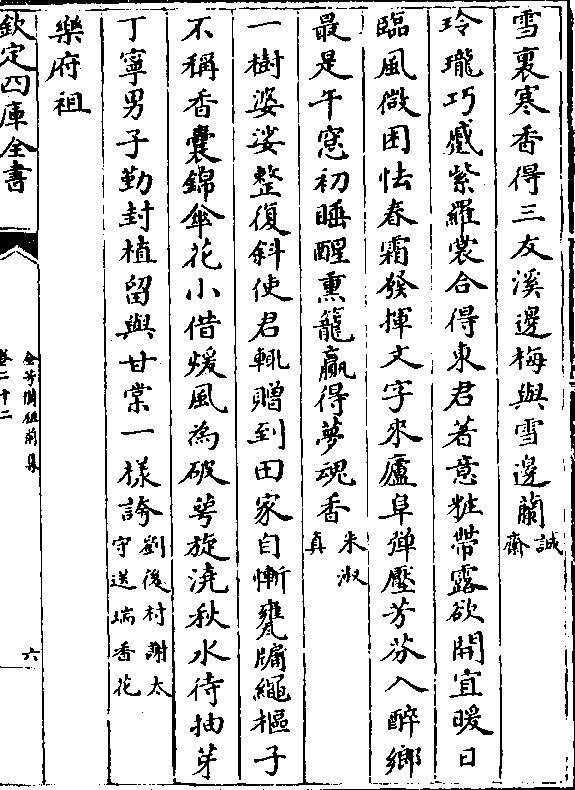 雪裏寒香得三友溪邊梅與雪邊蘭誠齋
玲瓏巧蹙紫羅裳合得東君著意粧帶露欲開宜暖日
臨風微困怯春霜發揮文字來廬阜彈壓芳芬入醉鄉
最是午窓初睡醒熏籠贏得夢魂香朱淑真
一樹婆娑整復斜使君輒贈到田家自慚甕牖繩樞子
不稱香囊錦傘花小借煖風為破萼旋澆秋水待抽芽
丁寧男子勤封植留與甘棠一樣誇劉後村謝太守送瑞香花
樂府祖
欽定四庫全書
全芳備祖前集
卷二十二
六